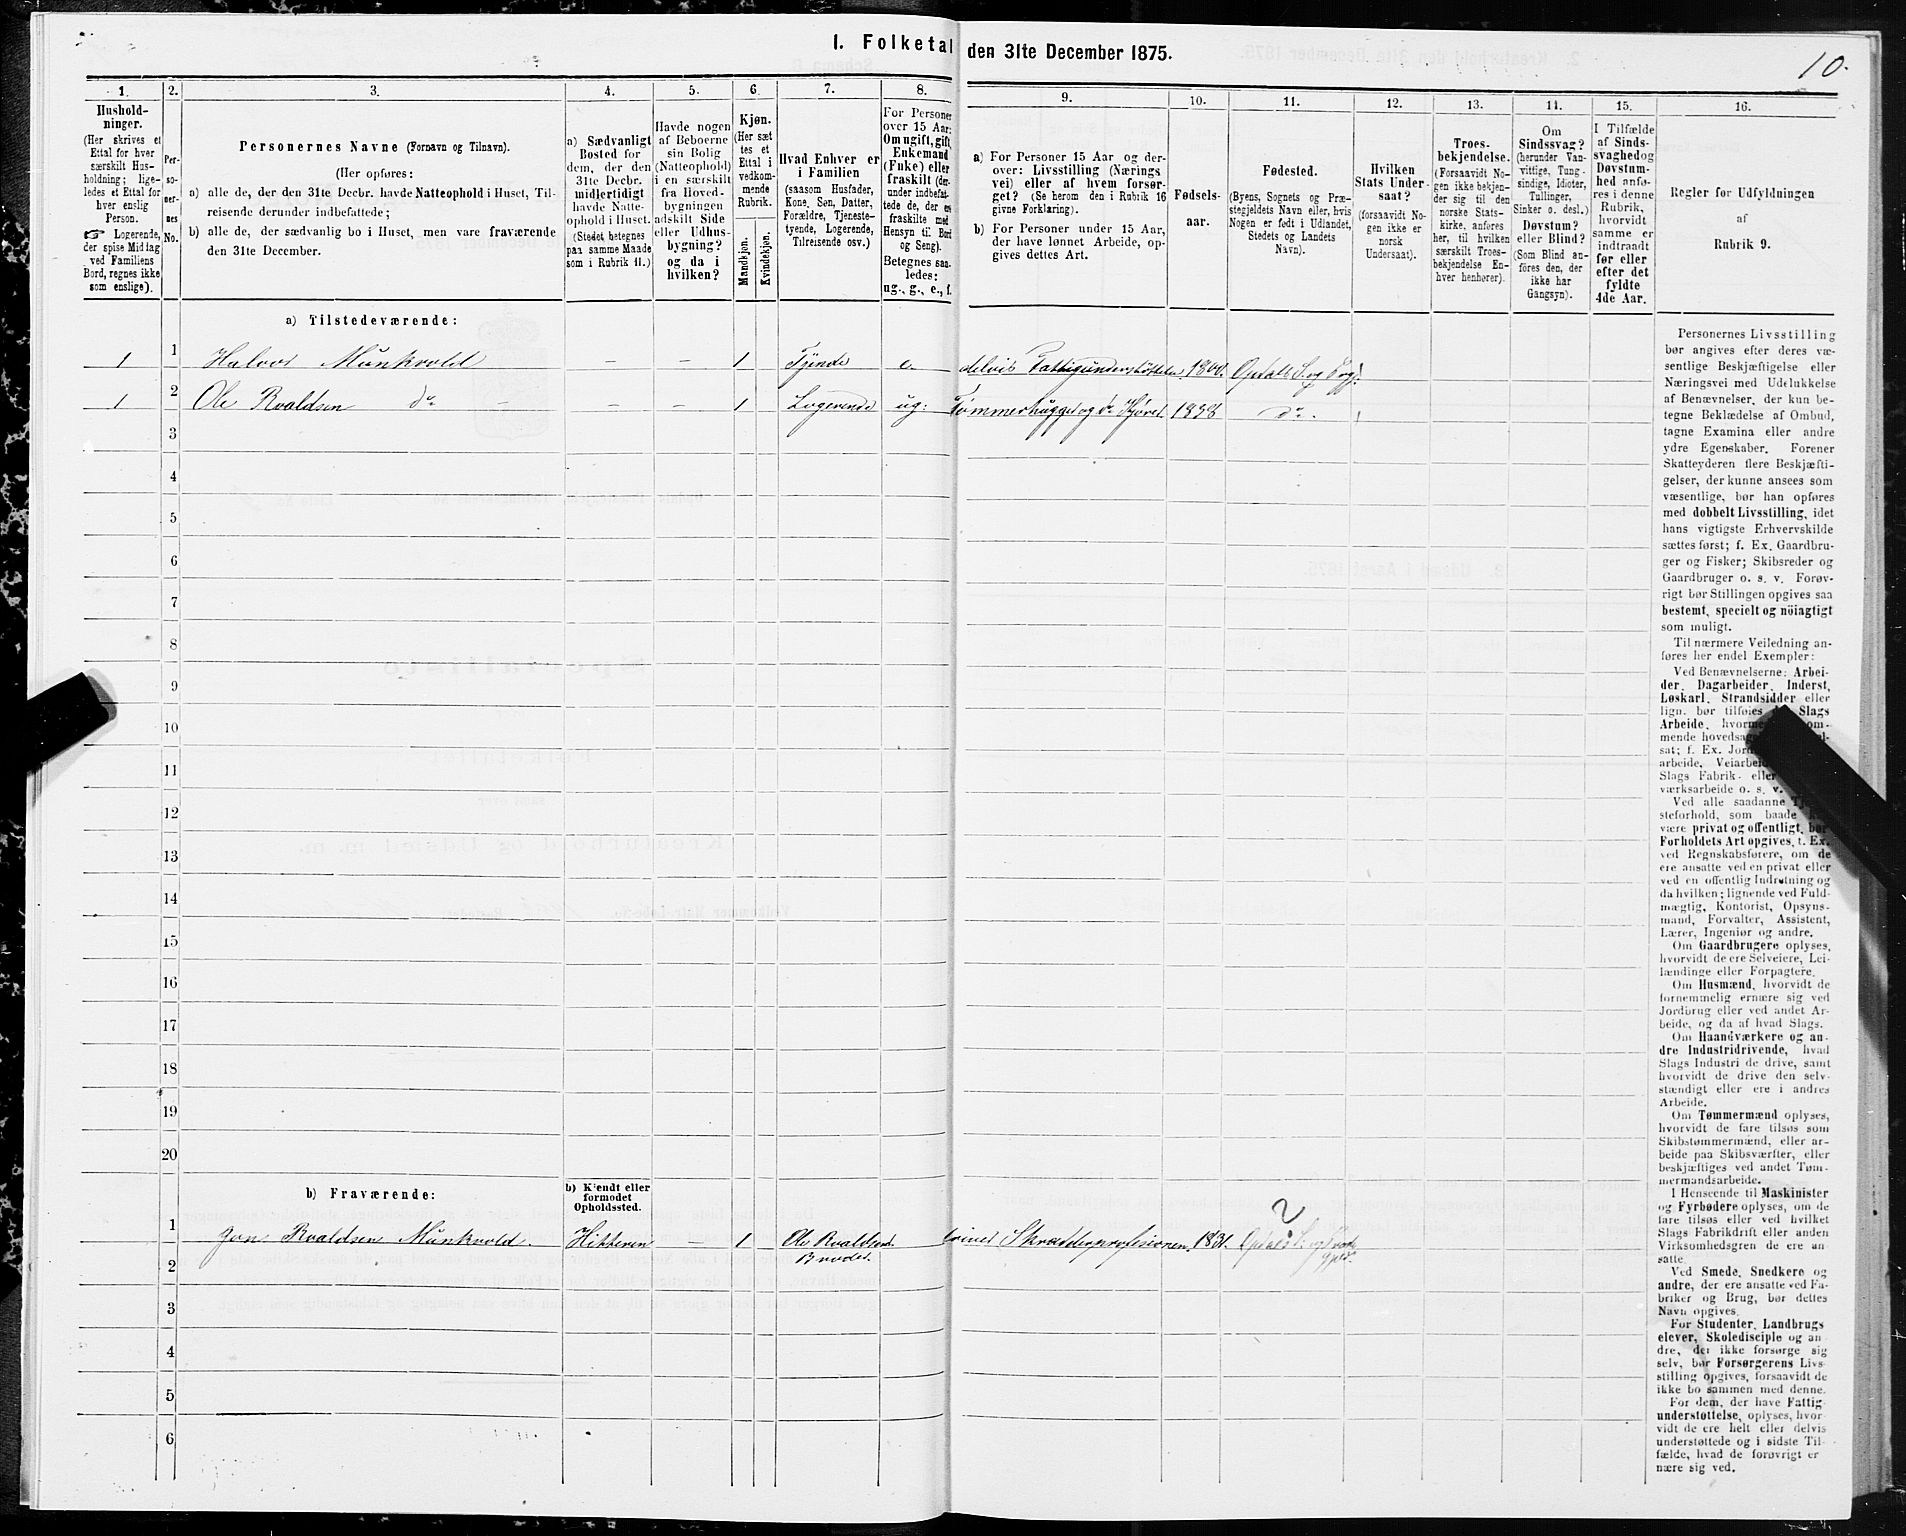 1. Folketal den 31te December 1875.
10.
1.
Hushold-
ninger.
(Her skrives et
Ettal for hver
særskilt Hus-
holdning; lige-
ledes et Ettal for
hver enslig
Person.
☞ Logerende,
der spise Middag
ved Familiens
Bord, regnes ikke
som enslige).
2.
Per-
so-
ner-
nes
No.
3.
Personernes Navne (Fornavn og Tilnavn).
(Her opføres:
a) alle de, der den 31te Decbr. havde Natteophold i Huset, Til-
reisende derunder indbefattede;
b) alle de, der sædvanlig bo i Huset, men vare fraværende
den 31te December.
4.
a) Sædvanligt
Bosted for
dem, der den
31te Decbr.
midlertidigt
havde Natte-
ophold i Huset.
(Stedet betegnes
paa samme Maade
som i Rubrik 11.)
5.
Havde nogen
af Beboerne
sin Bolig
(Natteophold)
i en særskilt
fra Hoved-
bygningen
adskilt Side
eller Udhus-
bygning?
og da i
hvilken?
6.
Kjøn.
(Her sæt
tes et
Ettal i
vedkom-
mende
Rubrik.
Mandkjøn.
Kvindekjøn.
7.
Hvad Enhver er
i Familien
(saasom Husfader,
Kone, Søn, Datter,
Forældre, Tjeneste-
tyende, Logerende,
Tilreisende osv.)
8.
For Personer
over 15 Aar:
Om ugift, gift,
Enkemand
(Enke) eller
fraskilt (der-
under indbefat-
tede de, der ere
fraskilte med
Hensyn til Bord
og Seng).
Betegnes saa-
ledes:
ug., g., e., f.
9.
a) For Personer 15 Aar og der-
over: Livsstilling (Nærings
vei) eller af hvem forsør-
get? (Se herom den i Rubrik 16
givne Forklaring).
b) For Personer under 15 Aar,
der have lønnet Arbeide, op-
gives dettes Art.
10.
Fødsels-
aar.
11.
Fødested.
(Byens, Sognets og Præ-
stegjeldets Navn eller, hvis
Nogen er født i Udlandet,
Stedets og Landets
Navn).
12.
Hvilken
Stats Under-
saat?
(forsaavidt No-
gen ikke er
norsk
Undersaat).
13.
Troes-
bekjendelse.
(Forsaavidt No-
gen ikke bekjen-
der sig til den
norske Stats-
kirke, anføres
her, til hvilken
særskilt Troes-
bekjendelse En-
hver henhører).
14.
Om
Sindssvag?
(herunder Van-
vittige, Tung-
sindige, Idioter,
Tullinger,
Sinker o. desl.)
Døvstum?
eller Blind?
(Som Blind an-
føres den, der
ikke har
Gangsyn).
15.
I Tilfælde
af Sinds-
svaghed og
Døvstum-
hed anfø-
res i denne
Rubrik,
hvorvidt
samme er
indtraadt
før eller
efter det
fyldte
4de Aar.
16.
Regler for Udfyldningen
af
Rubrik 9.
a) Tilstedeværende:
1 1 Halvor Munkvold — — 1 Tyende e. delvis Fattigunderstöttelse. 1800. Opdals S. og Prgj.
1 2 Ole Roaldsen do — — — 1 Logerende ug: Tømmerhugges og do Kjöret. 1838 do.
3
4
5
6
7
8
9
10
11
12
13
14
15
16
17
18
19
20
b) Fraværende:
b) Kjendt eller
formodet
Opholdssted.
1 Jon Roaldsen Munkvold. Hitteren — 1 Ole Roaldsens Skrædderprofesionen. 1831. Opdals S. og
2 Broder. gjeld.
2
3
4
5
6
Personernes Livsstilling
bør angives efter deres væ-
sentlige Beskjæftigelse eller
Næringsvei med Udelukkelse
af Benævnelser, der kun be-
tegne Beklædelse af Ombud,
tagne Examina eller andre
ydre Egenskaber. Forener
Skatteyderen flere Beskjæfti-
gelser, der kunne ansees som
væsentlige, bør han opføres
med dobbelt Livsstilling, idet
hans vigtigste Erhvervskilde
sættes først; f. Ex. Gaardbru-
ger og Fisker; Skibsreder og
Gaardbruger o. s. v. Forøv-
rigt bør Stillingen opgives saa
bestemt, specielt og nöiagtigt
som muligt.
Til nærmere Veiledning an-
føres her endel Exempler:
Ved Benævnelserne: Arbei-
der, Dagarbeider, Inderst,
Løskarl, Strandsidder eller
lign. bør tilføies Slags
Arbeide,
mende
sat; f. Ex.
arbeide,
Slags Fabrik- eller
værksarbeide o. s. v.
Ved alle saadanne
steforhold, som baade
være privat og offentligt, bør
Forholdets Art opgives, f. Ex.
ved Regnskabsførere, om de
ere ansatte ved en privat eller
ved en offentlig Indretning og
da hvilken; lignende ved Fuld-
mægtig, Kontorist, Opsyns-
mand, Forvalter, Assistent,
Lærer, Ingeniør og andre.
Om Gaardbrugere oplyses,
hvorvidt de ere Selveiere, Lei-
lændinge eller Forpagtere.
Om Husmænd, hvorvidt de
fornemmelig ernære sig ved
Jordbrug eller ved andet Ar-
beide, og da af hvad Slags.
Om Haandværkere og an-
dre Industridrivende, hvad
Slags Industri de drive, samt
hvorvidt de drive den selv-
stændigt eller ere i andres
Arbeide.
Om Tømmermænd oplyses,
hvorvidt de fare tilsøs som
Skibstømmermænd, eller ar-
beide paa Skibsværfter, eller
beskjæftiges ved andet Tøm-
mermandsarbeide.
I Henseende til Maskinister
og Fyrbødere oplyses, om de
fare tilsøs eller ved hvilket
Slags Fabrikdrift eller anden
Virksomhedsgren de ere an-
satte.
Ved Smede, Snedkere og
andre, der ere ansatte ved Fa-
briker og Brug, bør dettes
Navn opgives.
For Studenter, Landbrugs
elever, Skoledisciple og an
dre, der ikke forsørge sig
selv, bør Forsørgerens Livs-
stilling opgives, forsaavidt de
ikke bo sammen med denne.
For dem, der have Fattig
understøttelse, oplyses, hvor-
vidt de ere helt eller delvis
understøttede og i sidste Til-
fælde, hvad de forøvrigt er
nære sig ved.